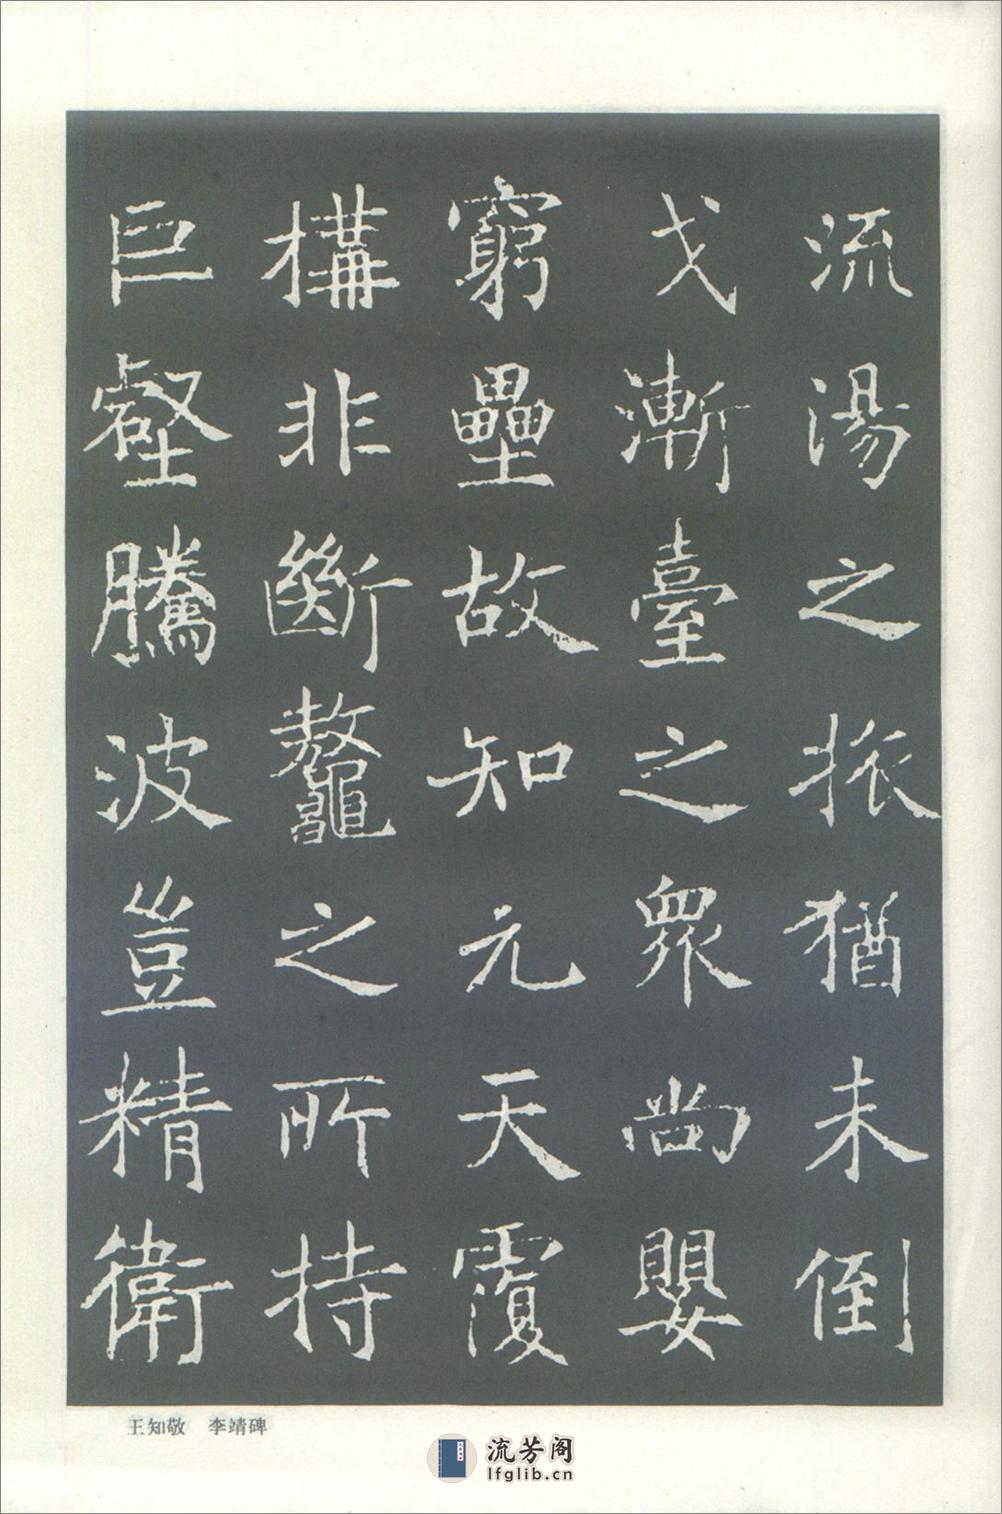 流湯之振猶未倒
戈漸臺之眾尚嬰
窮壘故知元天覆
構非斷鼇之所持
巨壑騰波豈精衛
王知敬 李靖碑
流芳阁
lfglib.cn